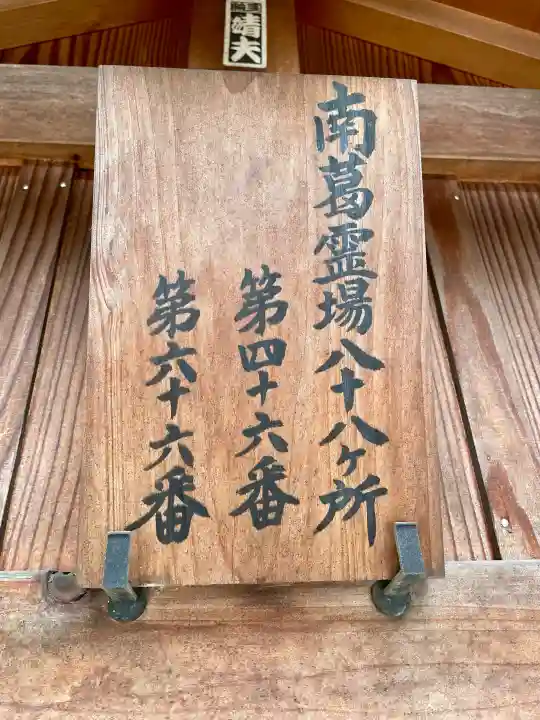 南葛霊場八十八ヶ所
第四十六番
第六十六番
靖夫